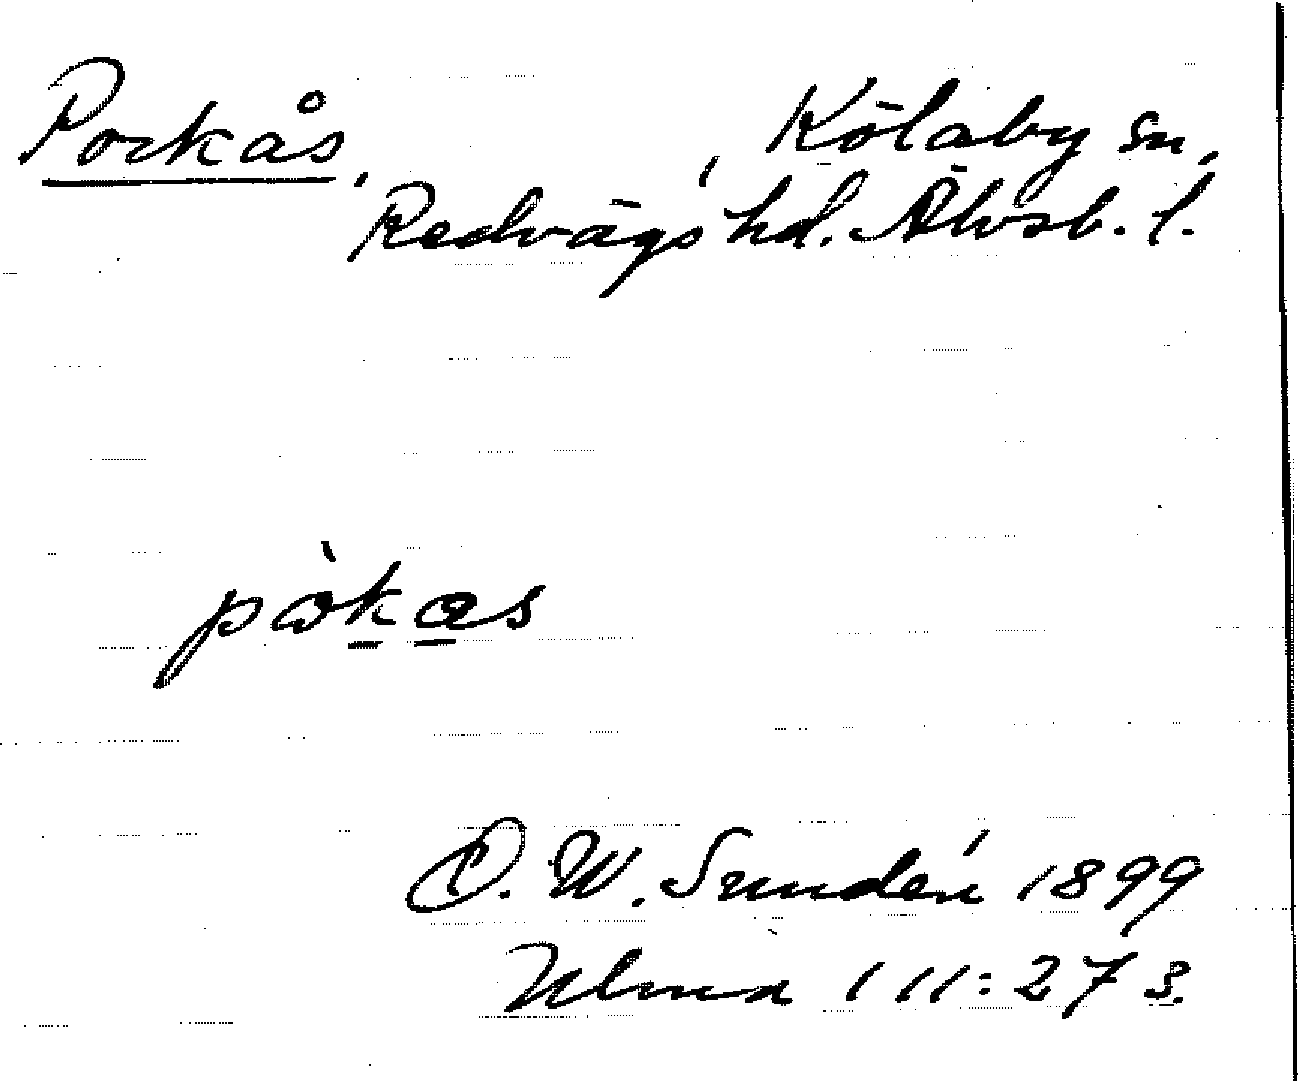 Porkås, , Kölaby sn,
Redvägs hd. Älvsb. l.
pàkas
D. W. Sundén 1899
Ulma 111:27 s.